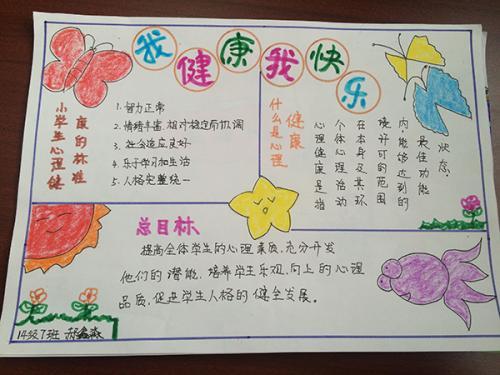 我健康我快乐
小学生心理健
康的标准
1.智力正常
2.情绪丰富.相对稳定而协调
3.社会适应良好
4.乐于学习和生活
5.人格完整统一
什么是心理
健康
心理健康是指
个体心理活动
在本身及其环
境许可的范围
内,能够达到的
最佳功能
状态.
总目标
提高全体学生的心理素质,充分开发
他们的潜能,培养学生乐观,向上的心理
品质,促进学生人格的健全发展。
14级7班